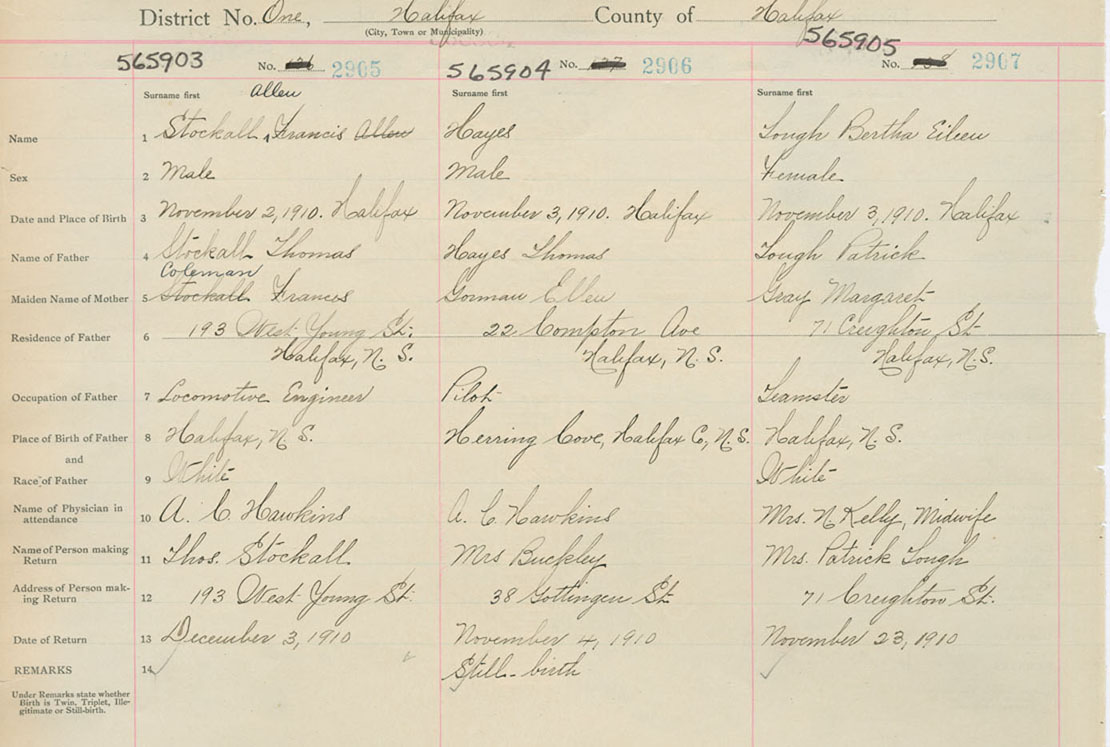 District No. One, Halifax County of Halifax
(City, Town or Municipality)
565903 No. 2905 565904 No. 2906 565905 No. 2907
Surname first Allen Surname first Surname first
Name 1 Stockall Francis Allen Hayes Lough Bertha Eileen
Sex 2 Male Male Female
Date and Place of Birth 3 November 2, 1910. Halifax November 3, 1910. Halifax November 3, 1910. Halifax
Name of Father 4 Stockall Thomas Hayes Thomas Lough Patrick
Coleman
Maiden Name of Mother 5 Stockall Frances Gorman Ellen Gray Margaret
Residence of Father 6 193 West Young St. 22 Compton Ave 71 Creighton St
Halifax, N. S. Halifax, N. S. Halifax, N.S.
Occupation of Father 7 Locomotive Engineer Pilot Teamster
Place of Birth of Father 8 Halifax, N. S. Herring Cove, Halifax Co, N.S. Halifax, N. S.
and
Race of Father 9 White White
Name of Physician in attendance 10 A. C. Hawkins A. C. Hawkins Mrs. N Kelly, Midwife
Name of Person making Return 11 Thos. Stockall Mrs Buckley Mrs. Patrick Lough
Address of Person making Return 12 193 West Young St. 38 Gottingen St 71 Creighton St.
Date of Return 13 December 3, 1910 November 4, 1910 November 23, 1910
REMARKS 14 Still-birth
Under Remarks state whether
Birth is Twin, Triplet, Ille-
gitimate or Still-birth.